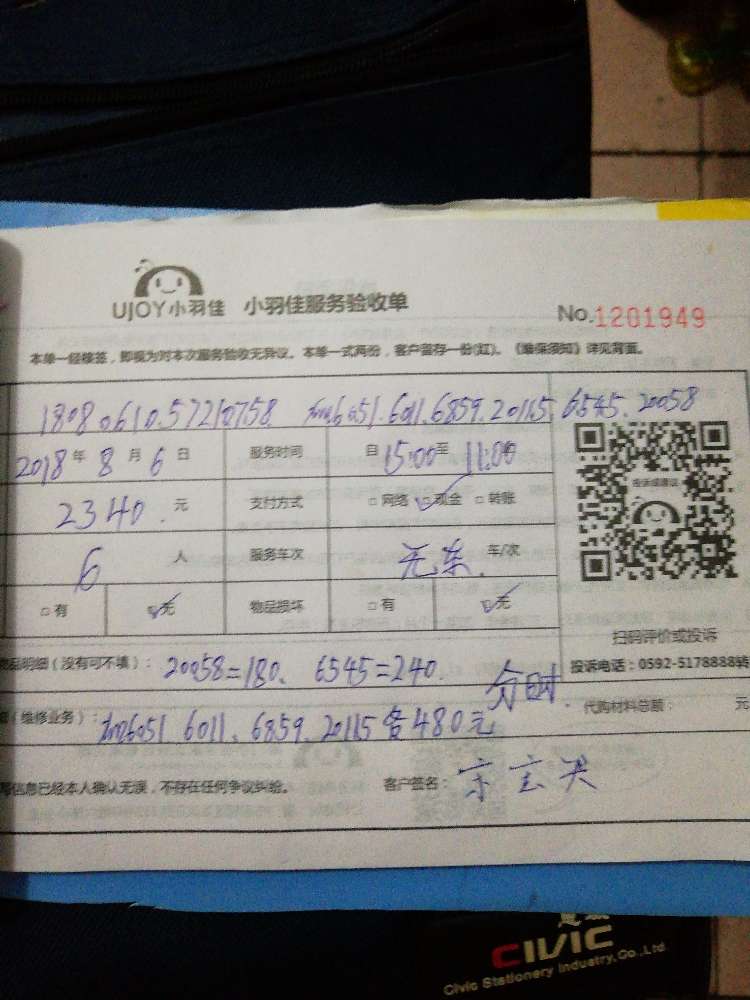 UJOY小羽佳 小羽佳服务验收单
No.1201949
本单一经核签，即视为对本次服务验收无异议。本单一式两份，客户留存一份(红)。《维保须知》详见背面。
18080610.57210758 6051.6011.6859.20115 6545.20058
2018年8月6日 服务时间 自15:00至11:00
2340.元 支付方式 □网络 ☑现金 □转账
投诉或建议
6人 服务车次 无车.车/次
□有 ☑无 物品损坏 □有 ☑无
扫码评价或投诉
品明细（没有可不填）：20058=180、6545=240.
投诉电话：0592-5178888转
分时.
（维修业务）：6051 6011、6859.20115各480元
代购材料总额： 元
写信息已经本人确认无误，不存在任何争议纠纷。 客户签名：
CIVIC
Civic Stationery Industry.Co.,Ltd.